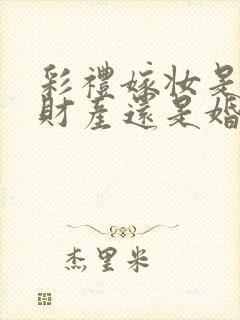 彩禮嫁妝是
財產還是婚
杰里米